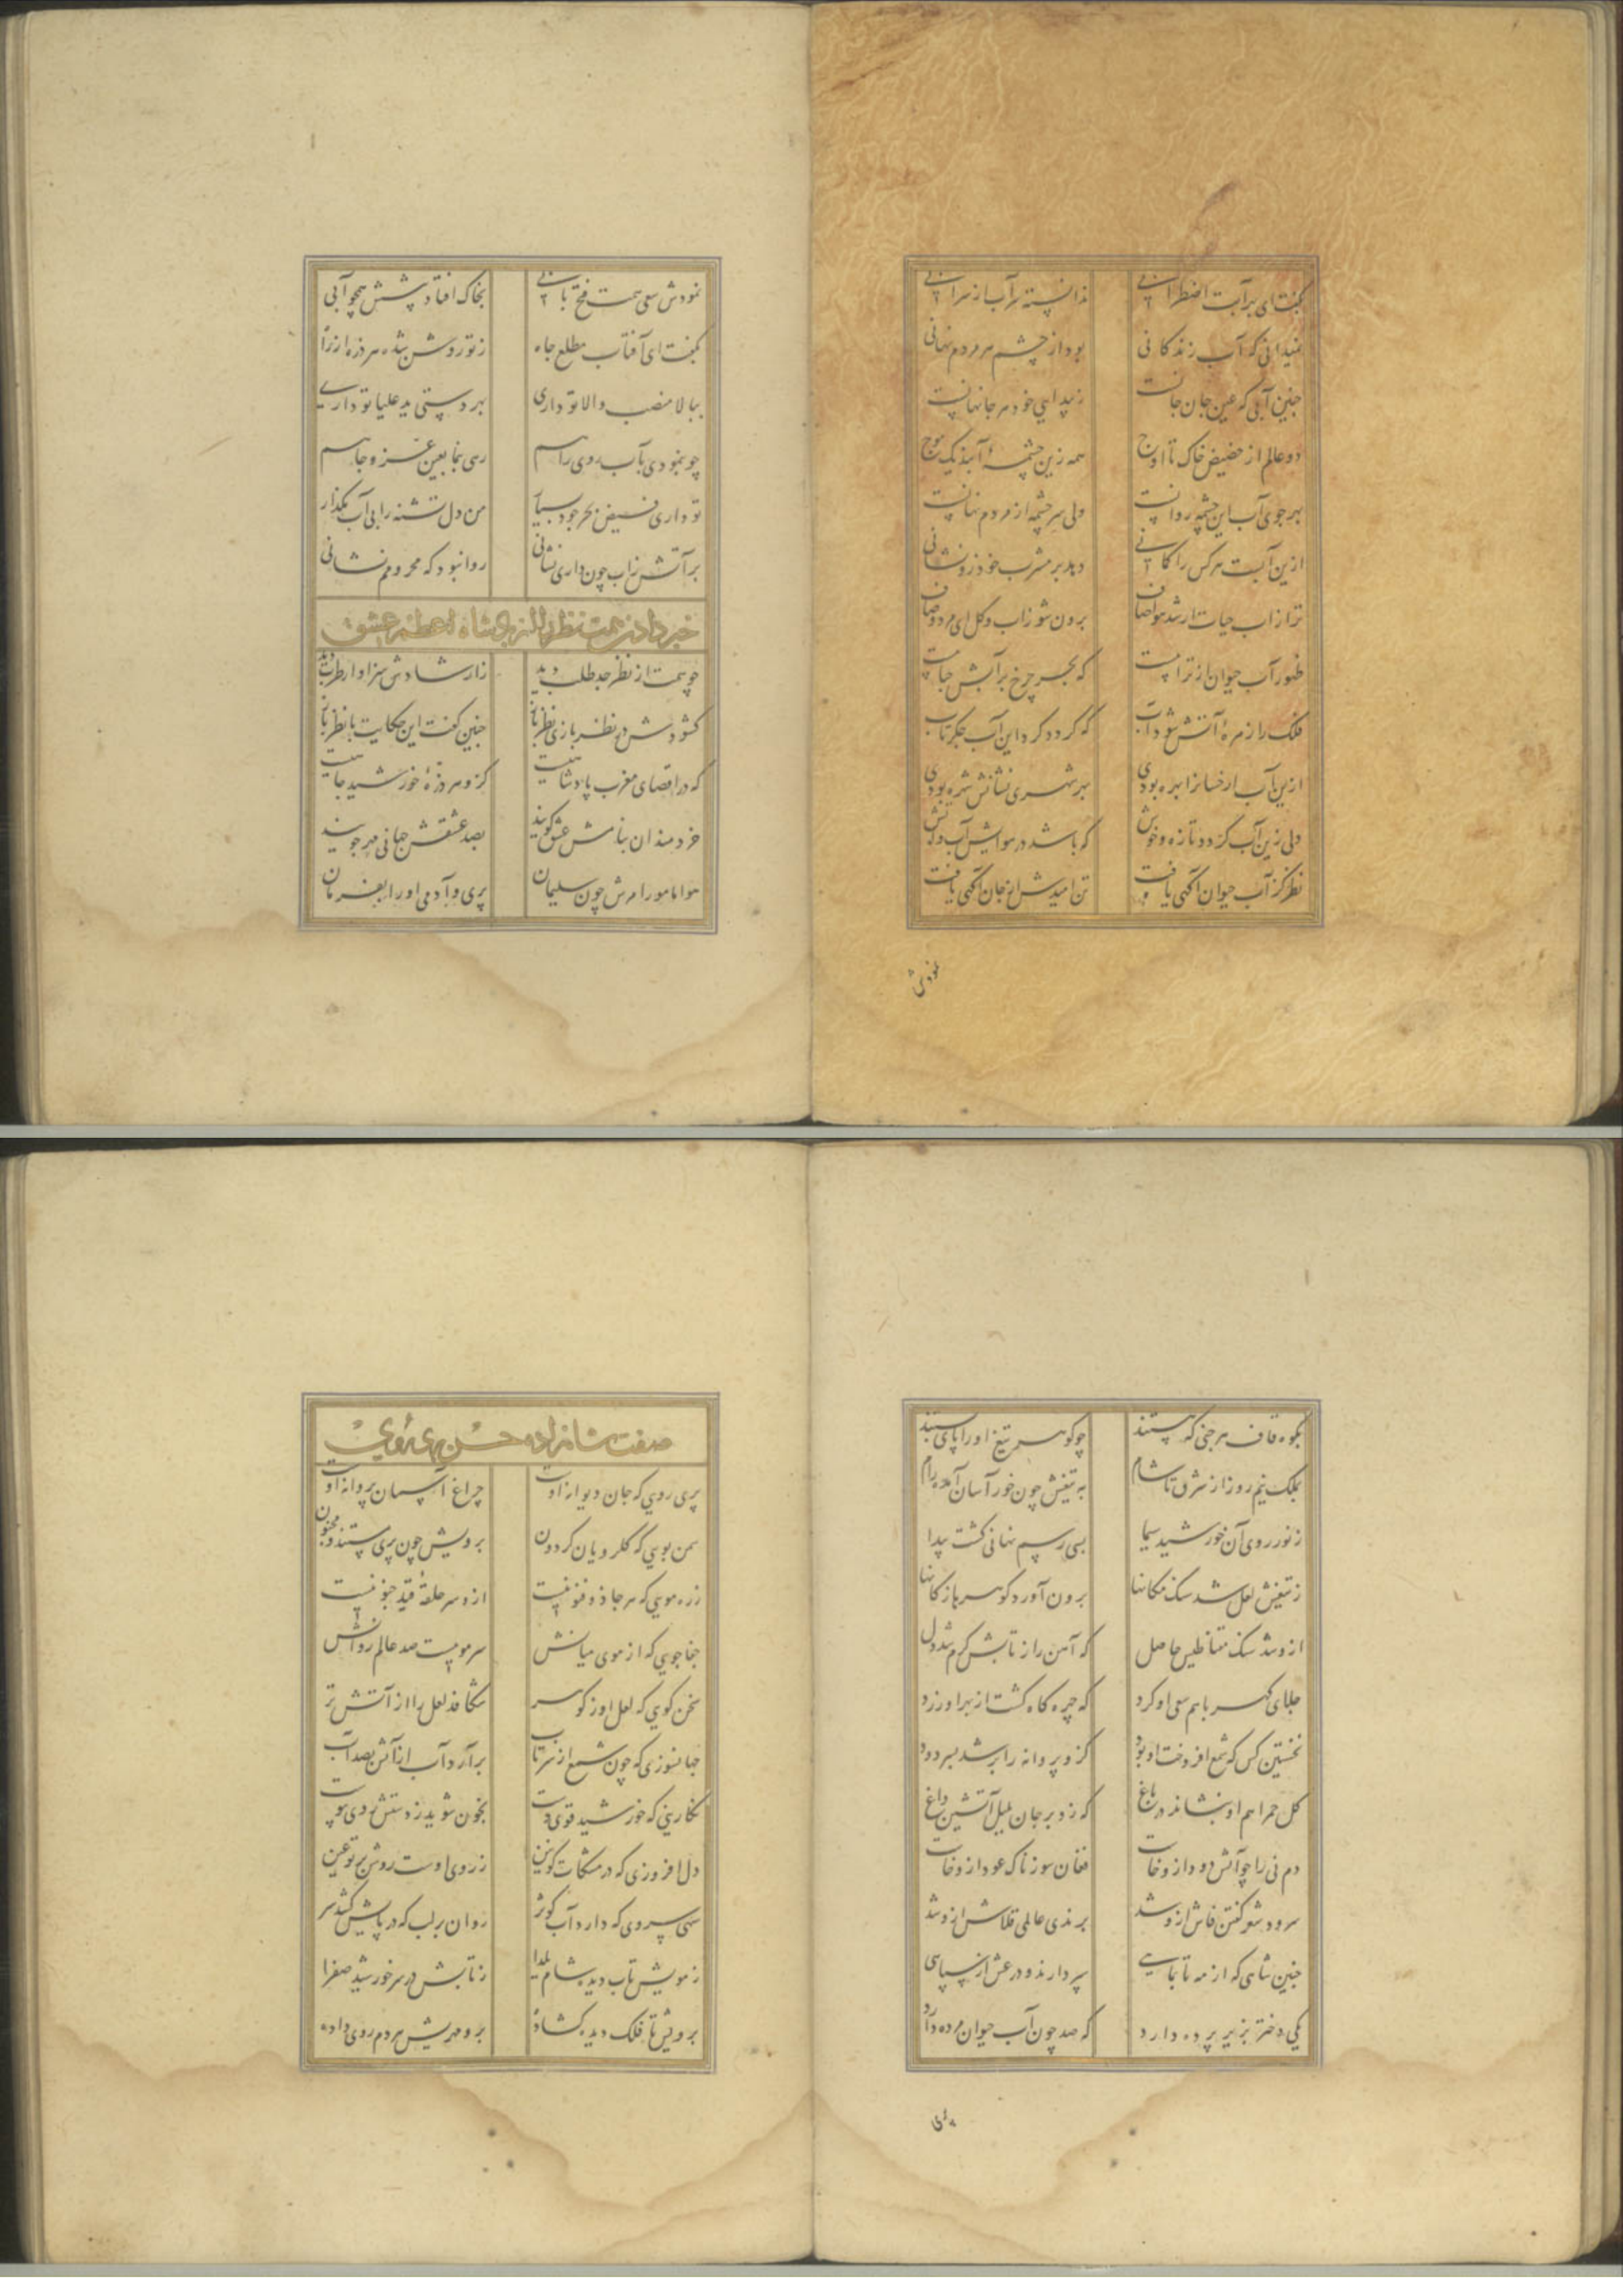 بگفت ای بر آبت اضطرابی ندانسته سر آب از سرابی
نمیدانی که آب زندگانی بود از چشم هر مردم نهانی
چنین آبی که عین جان جانست ز پیدایی خود در جا نهانست
دو عالم از حضیض خاک تا اوج همه زین چشمهٔ آبند یک موج
بهر جوی آب این چشمه روانست ولی سرچشمه از مردم نهانست
ازین آبست هر کس را کمانی دهد بر مشرب خود زو نشانی
ترا از آب حیات ار شد هوا صاف برون شو ز آب و گل ای مرد وصاف
ظهور آب حیوان از تراب است که بحر چرخ بر آبش حباب است
فلک را زهرهٔ آتش شود آب که گردد گرد این آب جگرتاب
ازین آب ار خسانرا بهره بودی بهر شهری نشانش شهره بودی
ولی زین آب گردد تازه و خوش که باشد در هوایش آب و آتش
نظر کز آب حیوان آگهی یافت تن امیدش از جان آگهی یافت
نمودش
نمودش سعی همت فتح بابی بخاک افتاد پیشش همچو آبی
بگفت ای آفتاب مطلع جاه ز تو روشن شده هر ذره را راه
ببالا منصب والا تو داری بهر دستی ید علیا تو داری
چو بنمودی بآب روی راهم رهی بنما بعین عز و جاهم
تو داری فیض بحر جود بسیار من دل تشنه را بی آب مگذار
بر آتش ز آب چون داری نشانی روا نبود که محرومم نشانی
خبر دادن همت نظر را از بزرگی شاه اعظم عشق
چو همت از نظر جد طلب دید ز ارشادش سزاوار طرب دید
گشودش در نظر بازی نظر باز چنین گفت این حکایت با نظر باز
که در اقصای مغرب پادشاهیست کزو هر ذرهٔ خورشید جاهیست
خردمندان بنامش عشق گویند بصد عشقش جهانی مهر جویند
هوا با مور امرش چون سلیمان پری و آدمی او را بفرمان
بکوه قاف هر جنی که هستند چو گوهر تیغ او را پای بستند
بملک نیمروز از شرق تا شام به تیغش چون خور آسان آمده رام
ز نور روی آن خورشید سیما بسی رسم نهانی گشت پیدا
ز تیغش لعل شد سنگ مکانها برون آورد گوهر باز کانها
ازو شد سنگ مقناطیس حاصل که آهن را ز تابش گرم شد دل
جلای کهربا هم سعی او کرد که چهره کاه گشت از بهر او زرد
نخستین کس که شمع افروخت او بود کزو پروانه را بر شد بسر دود
گل حمرا هم او بنشاند در باغ که زد بر جان بلبل آتشین داغ
دم نی را چو آتش دود ازو خاست فغان سوزناک عود ازو خاست
سرود شعر گفتن فاش ازو شد برندی عالمی قلاش ازو شد
چنین شاهی که از مه تا بماهی سپر دارند و در عشق از سپاهی
یکی دختر بزیر پرده دارد که صد چون آب حیوان مرده دارد
پری
صفت شاهزاده حسن پری روی
پری رویی که جان دیوانه اوست چراغ آسمان پروانه اوست
سمن بویی که گلرویان گردون برویش چون پری هستند مجنون
زره مویی که هر جا ذو فنونیست ازو سر حلقهٔ قید جنونیست
جفاجویی که از موی میانش سر موییست صد عالم روانش
سخن گویی که لعل او ز گوهر شکافد لعل را از آتش تر
جهانسوزی که چون شمع از سر تاب برآرد آب از آتش بصد آب
نگارینی که خورشید قوی دست بخون شوید ز دستش روی پیوست
دل افروزی که در مشکات کونین ز روی اوست روشن پرتو عین
سهی سروی که دارد آب کوثر روان بر لب که در پایش کشد سر
ز مویش تاب دیده شام یلدا ز تابش در سر خورشید صفرا
برویش تا فلک دیده گشاده برو مهرش هر دم روی داده